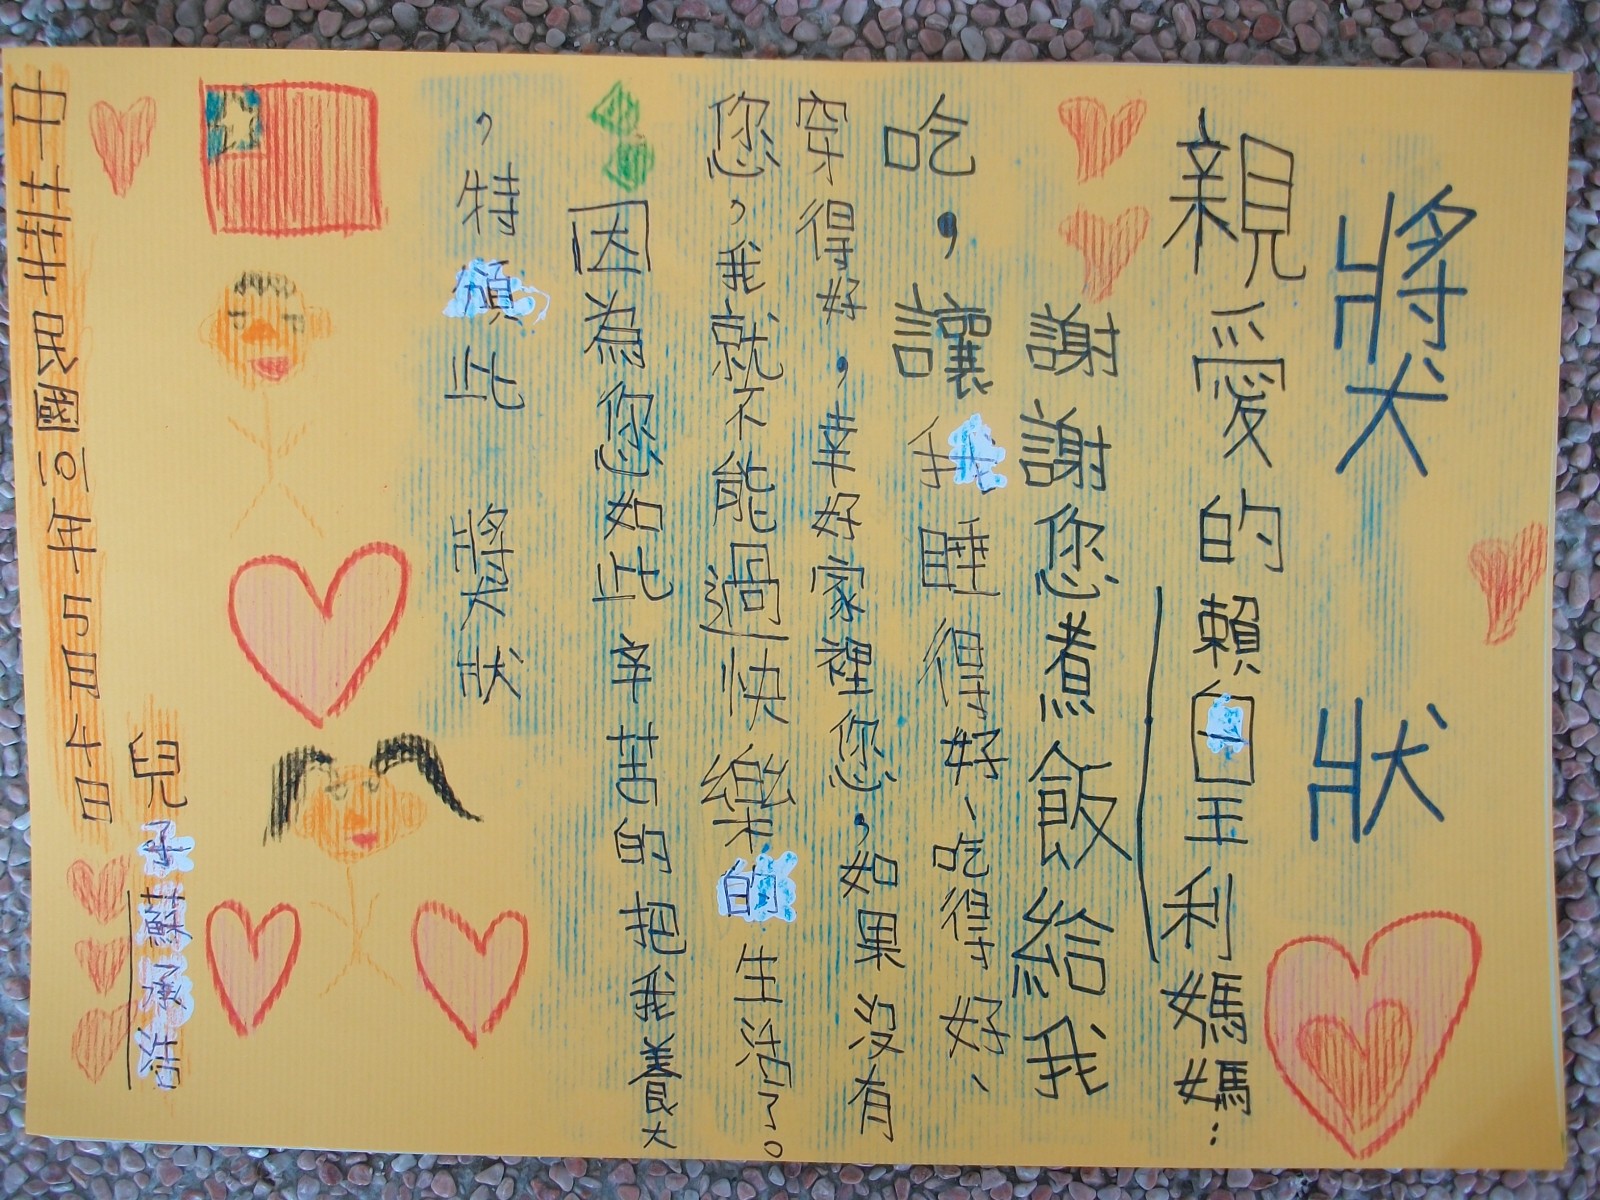 獎狀
親愛的賴王利媽媽：
謝謝您煮飯給我
吃，讓我睡得好、吃得好、
穿得好，幸好家裡您，如果沒有
您，我就不能過快樂的生活了。
因為您如此辛苦的把我養大
，特頒此 獎狀
兒子蘇承浩
中華民國101年5月4日